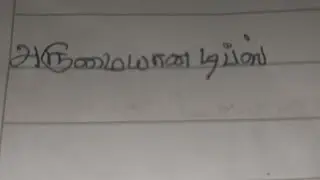 அருமையான டிப்ஸ்